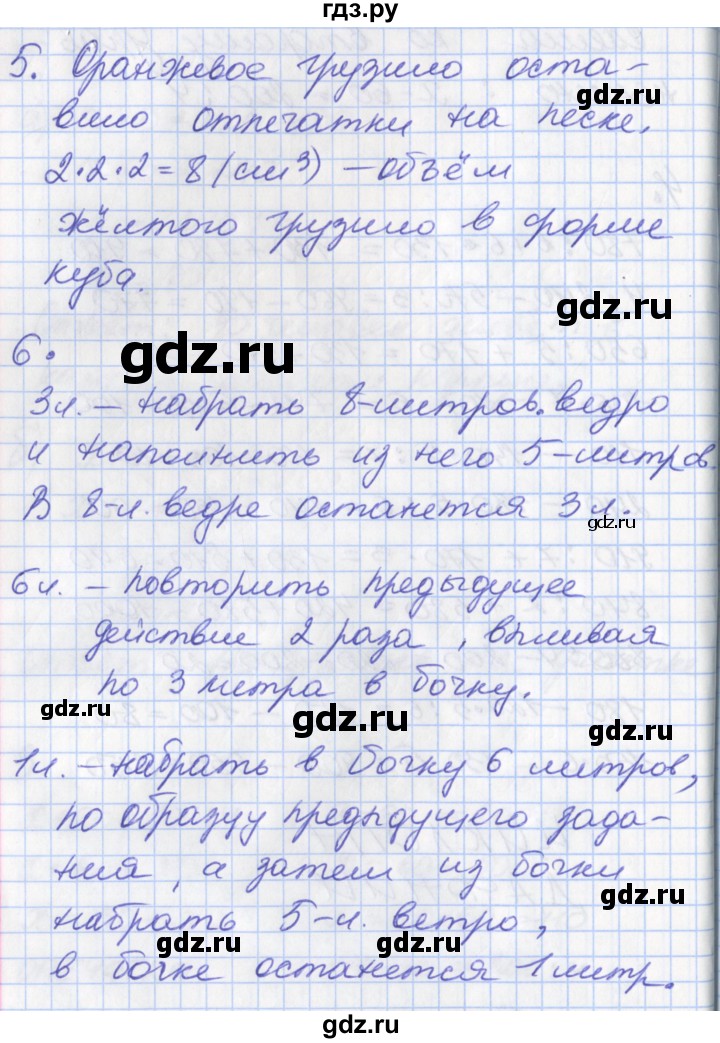 гдз.ру
5. Оранжевое грузило оста-
gdz.ru
вило отпечатки на песке.
2·2·2=8 (см³) – объём
жёлтого грузило в форме
куба.
gdz.ru
gdz.ru
6.
3л. – набрать 8-литров. ведро
и наполнить из него 5-литров.
В 8-л. ведре останется 3л.
gdz.ru
6л. – повторить предыдущее
действие 2 раза, выливая
по 3 литра в бочку.
gdz.ru
gdz.ru
gdz.ru
1л. – набрать в бочку 6 литров,
по образцу предыдущего зада-
ния, а затем из бочки
gdz.ru
набрать 5-л. ветро,
gdz.ru
gdz.ru
в бочке останется 1 литр.
gdz.ru